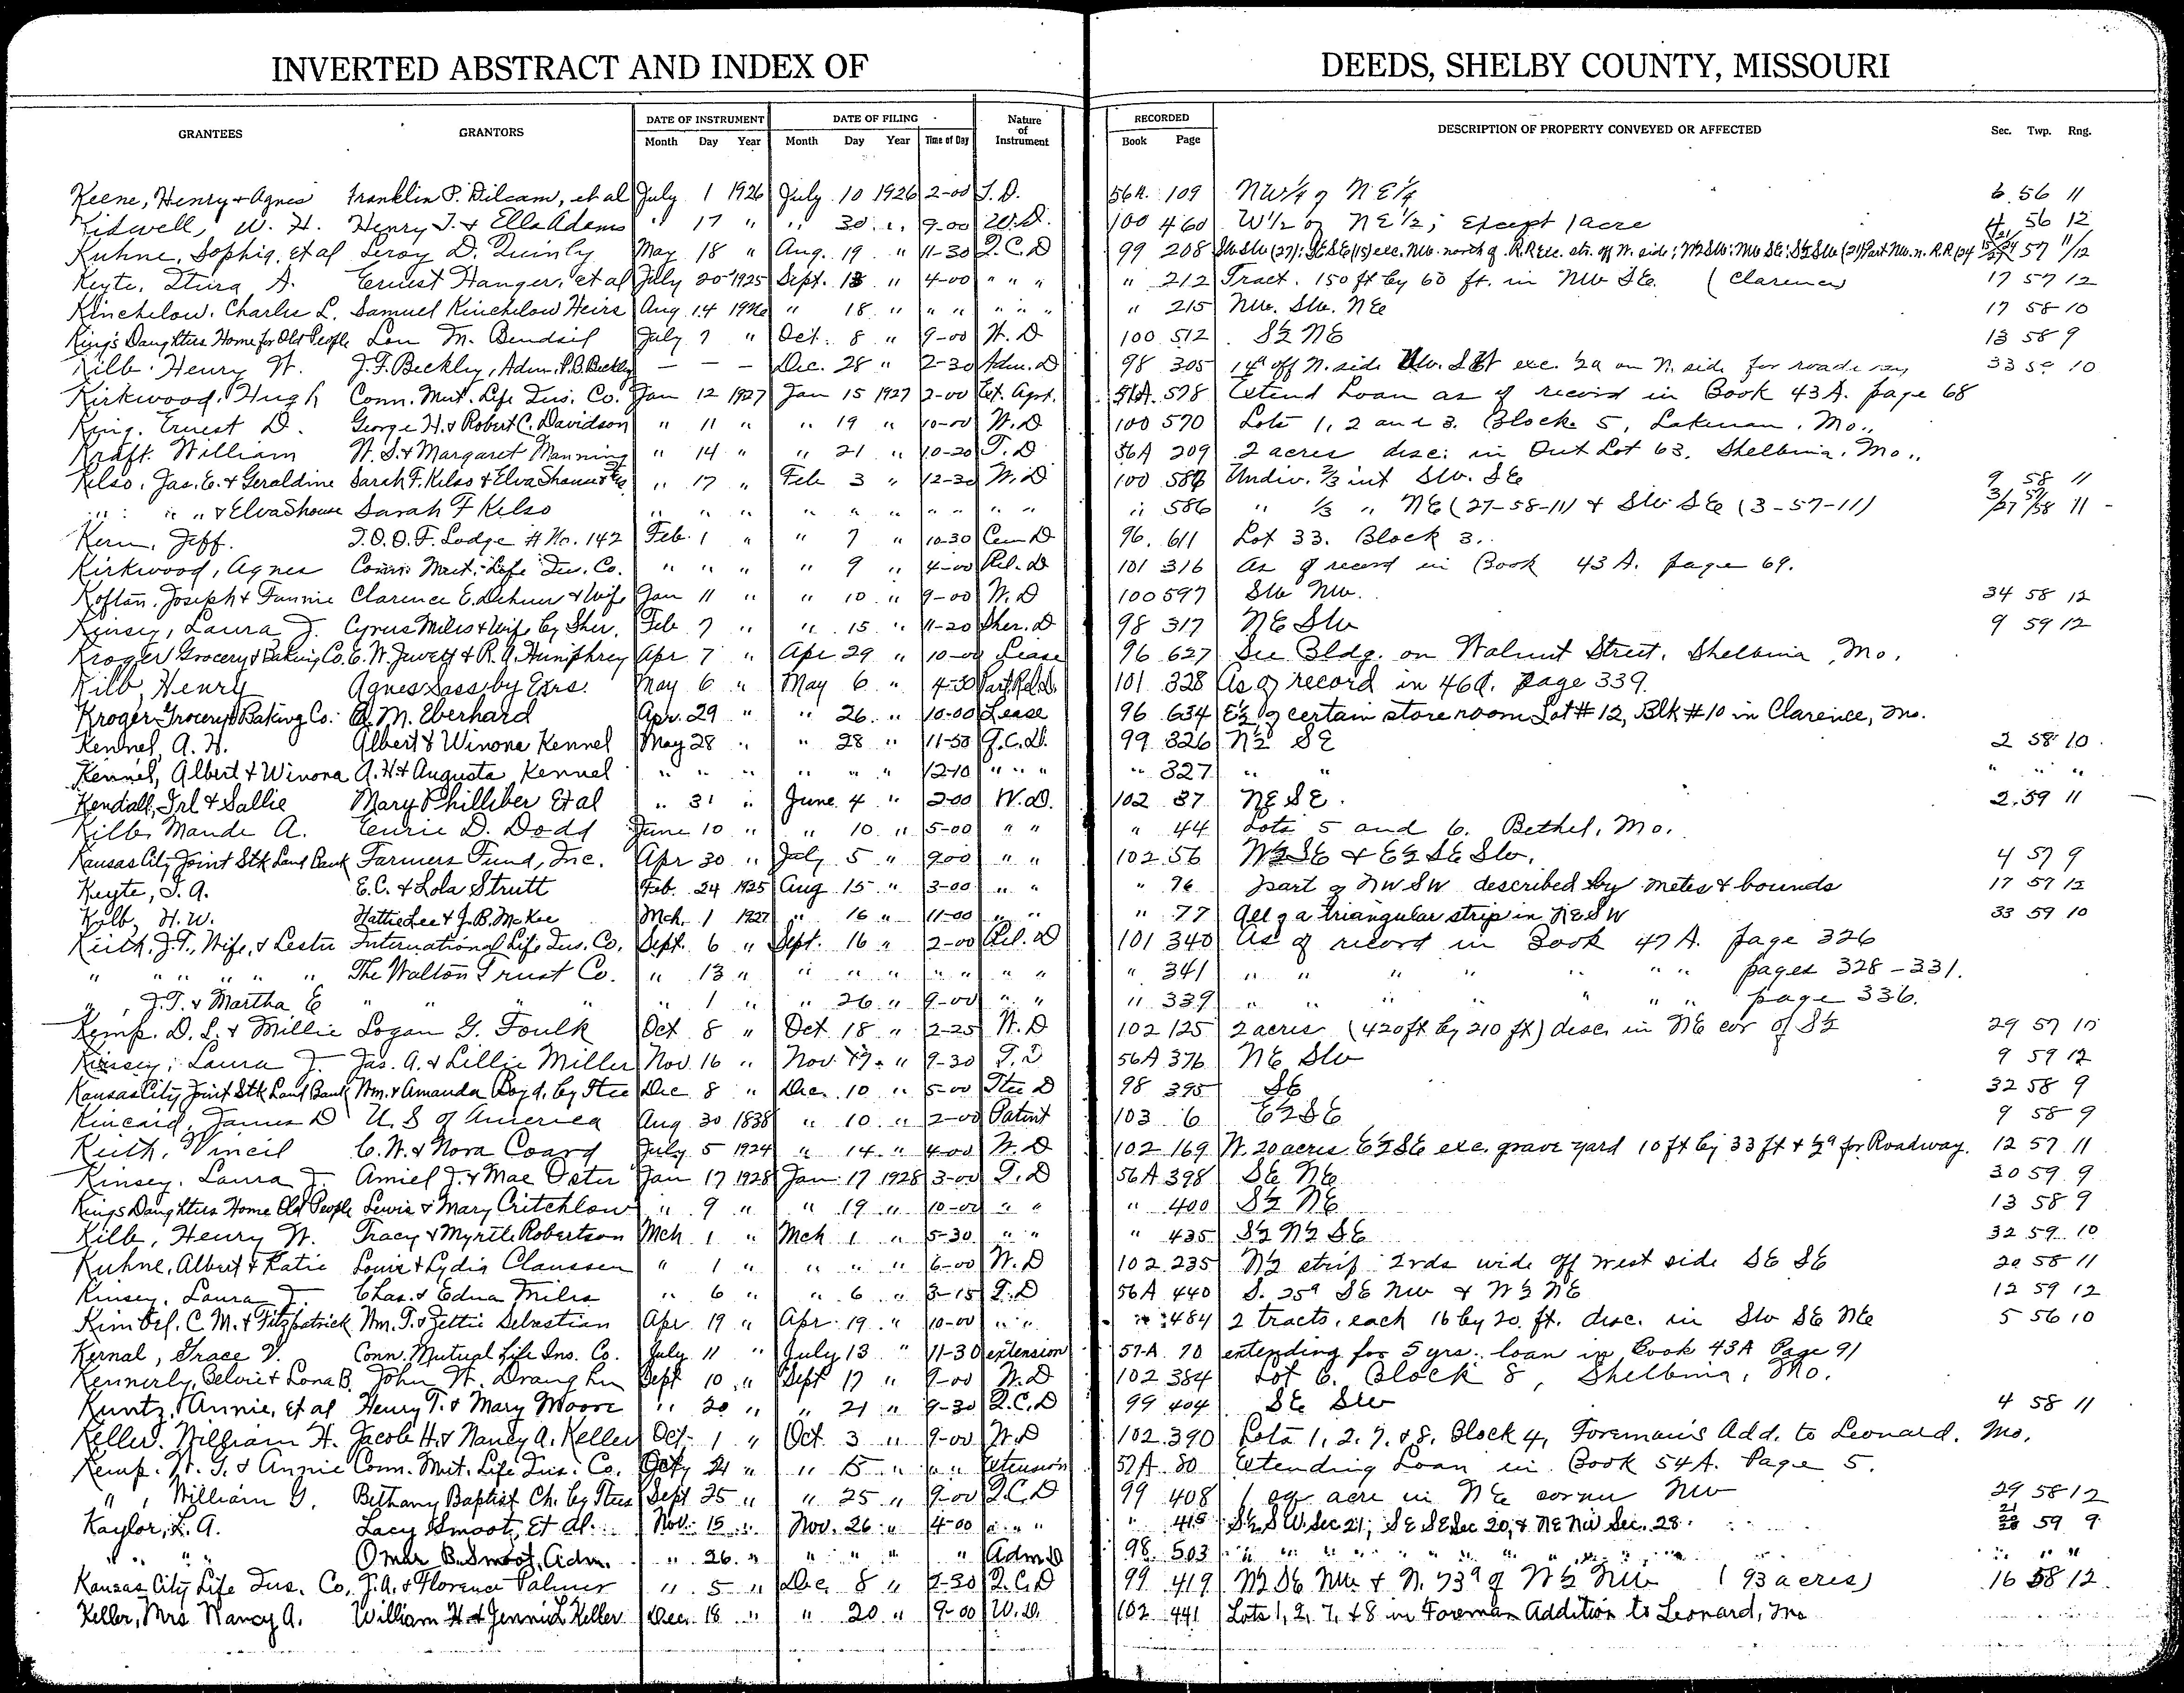 INVERTED ABSTRACT AND INDEX OF DEEDS, SHELBY COUNTY, MISSOURI
GRANTEES GRANTORS DATE OF INSTRUMENT DATE OF FILING Nature of Instrument RECORDED DESCRIPTION OF PROPERTY CONVEYED OR AFFECTED Sec. Twp. Rng.
Month Day Year Month Day Year Time of Day Book Page
Keene, Henry + Agnes Franklin P. Dilcam, et al July 1 1926 July 10 1926 2-00 T.D. 56A 109 NW¼ of NE¼ 6 56 11
Kidwell, W. H. Henry T. & Ella Adams " 17 " " 30 " 9-00 W.D. 100 460 W½ of NE½; Except 1 acre 56 12
Kuhne, Sophia, et al Leroy D. Quinby May 18 " Aug. 19 " 11-30 Q.C.D 99 208 SwSw (27); SESE (15) exc. Nw. north of R.R Exc. str. off N. side; W½Sw; Nw SE; S½Sw (21) Part Nw. n. R.R 57 11/12
Keyte, A. Ernest Hanger, et al July 20 1925 Sept. 13 " 4-00 " " " " 212 Tract. 150 ft by 60 ft. in NW SE. (Clarence) 17 57 12
Kinchelow, Charles L. Samuel Kinchelow Heirs Aug 14 1926 " 18 " " " " " " " 215 Nw. Sw. NE 17 58 10
King's Daughters Home for Old People Lou M. Bendsil July 7 " Oct. 8 " 9-00 W.D 100 512 S½ NE 13 58 9
Kilb. Henry W. J.F. Beckley, Adm. P.B. Beckley — — — Dec. 28 " 2-30 Adm. D 98 305 14a off N. side exc. ½a on N. side for roadway 33 59 10
Kirkwood, Hugh Conn. Mut. Life Ins. Co. Jan 12 1927 Jan 15 1927 2-00 Ext. Agrt. 51A. 578 Extend Loan as of record in Book 43 A. page 68
King. Ernest D. George H. & Robert C. Davidson " 11 " " 19 " 10-00 W.D 100 570 Lots 1, 2 and 3. Block 5, Lakenan, Mo.,
Kraft. William W. S. & Margaret Manning " 14 " " 21 " 10-20 T.D 56A 209 2 acres desc: in Out Lot 63. Shelbina, Mo.,
Kelso, Jas. E. & Geraldine Sarah F. Kelso & Elva Shouse " 17 " Feb 3 " 12-30 W.D 100 586 Undiv. ⅔ int Sw. SE 9 58 11
" " " & Elva Shouse Sarah F Kelso " " " " " " " " " " " 586 " ⅓ " NE (27-58-11) & Sw SE (3-57-11) 3/27 57/58 11
Kern, Jeff. I.O.O.F. Lodge # No. 142 Feb. 1 " " 7 " 10-30 Cem D 96. 611 Lot 33. Block 3.
Kirkwood, Agnes Conn. Mut. Life Ins. Co. " " " " 9 " 4-00 Rel. D 101 316 As of record in Book 43 A. page 69.
Koftan, Joseph & Fannie Clarence E. Dehner & Wife Jan 11 " " 10 " 9-00 W.D 100 597 Sw Nw. 34 58 12
Kinsey, Laura J. Cyrus Miles & Wife by Sher. Feb 7 " " 15 " 11-20 Sher. D 98 317 NE Sw 9 59 12
Kroger Grocery & Baking Co. E. W. Jewett & R. A. Humphrey Apr 7 " Apr 29 " 10-00 Lease 96 627 See Bldg. on Walnut Street, Shelbina, Mo.
Kilb, Henry Agnes Sass by Exrs. May 6 " May 6 " 4-30 Part Rel. D. 101 328 As of record in 46A. page 339.
Kroger Grocery & Baking Co. A. M. Eberhard Apr. 29 " " 26 " 10-00 Lease 96 634 E½ of certain store room Lot #12, Blk #10 in Clarence, Mo.
Kennel, A. H. Albert & Winona Kennel May 28 " " 28 " 11-50 Q.C.D. 99 326 N½ SE 2 58 10
Kennel, Albert & Winona A. H & Augusta Kennel " " " " " " 12-10 " " " " 327 " " " " "
Kendall, Irl & Sallie Mary Philliber Et al " 31 " June 4 " 2-00 W.D. 102 37 NE SE. 2 59 11
Kilb, Maude A. Eurie D. Dodd June 10 " " 10 " 5-00 " " " 44 Lots 5 and 6. Bethel, Mo.
Kansas City Joint Stk Land Bank Farmers Fund, Inc. Apr 30 " July 5 " 9-00 " " 102 56 W½SE & E½ SE Sw. 4 57 9
Keyte, I. A. E.C. & Lola Strutt Feb. 24 1925 Aug 15 " 3-00 " " " 76 part of NW SW described by metes & bounds 17 57 12
Kolb, H. W. Hattie Lee & J. B. McKee Mch. 1 1927 " 16 " 11-00 " " " 77 All of a triangular strip in NE SW 33 59 10
Keith, J. T., Wife, & Lester International Life Ins. Co. Sept. 6 " Sept. 16 " 2-00 Rel. D 101 340 As of record in Book 47 A. page 326
" " " " " The Walton Trust Co. " 13 " " " " " " " " " 341 " " " " " " " pages 328-331.
", J. T. & Martha E " " " " " 1 " " 26 " 9-00 " " " 339 " " " " " " " page 336.
Kemp. D. L. & Millie Logan G. Foulk Oct 8 " Oct 18 " 2-25 W.D 102 125 2 acres (420 ft by 210 ft) desc. in NE cor of S½ 29 57 10
Kinsey, Laura J. Jas. A. & Lillie Miller Nov 16 " Nov 17 " 9-30 T.D 56A 376 NE Sw 9 59 12
Kansas City Joint Stk Land Bank Wm. & Amanda Boyd, by Stee Dec 8 " Dec. 10 " 5-00 Stee D 98 395 SE 32 58 9
Kincaid, James D U. S of America Aug 30 1838 " 10 " 2-00 Patent 103 6 E½SE 9 58 9
Keith, Vincil C. W. & Nora Coard July 5 1924 " 14 " 4-00 W.D 102 169 W. 20 acres E½SE exc. grave yard 10 ft by 33 ft & ½a for Roadway. 12 57 11
Kinsey, Laura J. Amiel J. & Mae Oster Jan 17 1928 Jan 17 1928 3-00 T.D 56A 398 SE NE 30 59 9
Kings Daughters Home Old People Lewis & Mary Critchlow " 9 " " 19 " 10-00 " " " 400 S½ NE 13 58 9
Kilb, Henry W. Tracy & Myrtle Robertson Mch 1 " Mch 1 " 5-30 " " " 435 S½ N½ SE 32 59 10
Kuhne, Albert & Katie Louis & Lydia Claussen " 1 " " " " 6-00 W.D 102 235 N½ strip 2 rds wide off west side SE SE 20 58 11
Kinsey, Laura J. Chas. & Edna Miles " 6 " " 6 " 3-15 T.D 56A 440 S. 25a SE Nw & W½ NE 12 59 12
Kimbel. C. M. & Fitzpatrick Wm. T. & Zettie Sebastian Apr 19 " Apr. 19 " 10-00 " " " 484 2 tracts, each 16 by 20 ft. desc. in Sw SE NE 5 56 10
Kernal, Grace V. Conn. Mutual Life Ins. Co. July 11 " July 13 " 11-30 extension 57-A 70 extending for 5 yrs. loan in Book 43A Page 91
Kennerly, Belvie & Lona B. John W. Draughn Sept 10 " Sept 17 " 9-00 W.D 102 384 Lot 6. Block 8, Shelbina, Mo.
Kuntz, Annie, et al Henry T. & Mary Moore " 20 " " 21 " 9-30 Q.C.D 99 404 SE Sw 4 58 11
Keller. William H. Jacob H. & Nancy A. Keller Oct 1 " Oct 3 " 9-00 W.D 102 390 Lots 1, 2, 7, & 8, Block 4, Foreman's Add. to Leonard, Mo.
Kemp. W. G. & Annie Conn. Mut. Life Ins. Co. 21 " " 15 " " " Extension 57A 80 Extending Loan in Book 54 A. Page 5.
", William G. Bethany Baptist Ch. by Stees Sept 25 " " 25 " 9-00 Q.C.D 99 408 1 sq acre in NE corner NW 29 58 12
Kaylor, L. A. Lacy Smoot, Et Al. Nov. 15 " Nov. 26 " 4-00 " " " " 415 S½ SW Sec 21; SE SE Sec 20, & NE NW Sec. 28. 59 9
" " " Omar B. Smoot, Adm. " 26 " " " " " Adm D 98. 503 " " " " " " " " " " " "
Kansas City Life Ins. Co. J. A. & Florence Palmer " 5 " Dec. 8 " 2-30 Q.C.D 99 419 N½ SE NW & N. 73a of W½ NW (93 acres) 16 58 12
Keller, Mrs Nancy A. William H & Jennie L Keller Dec. 18 " " 20 " 9-00 W.D. 102 441 Lots 1, 2, 7, & 8 in Foreman Addition to Leonard, Mo